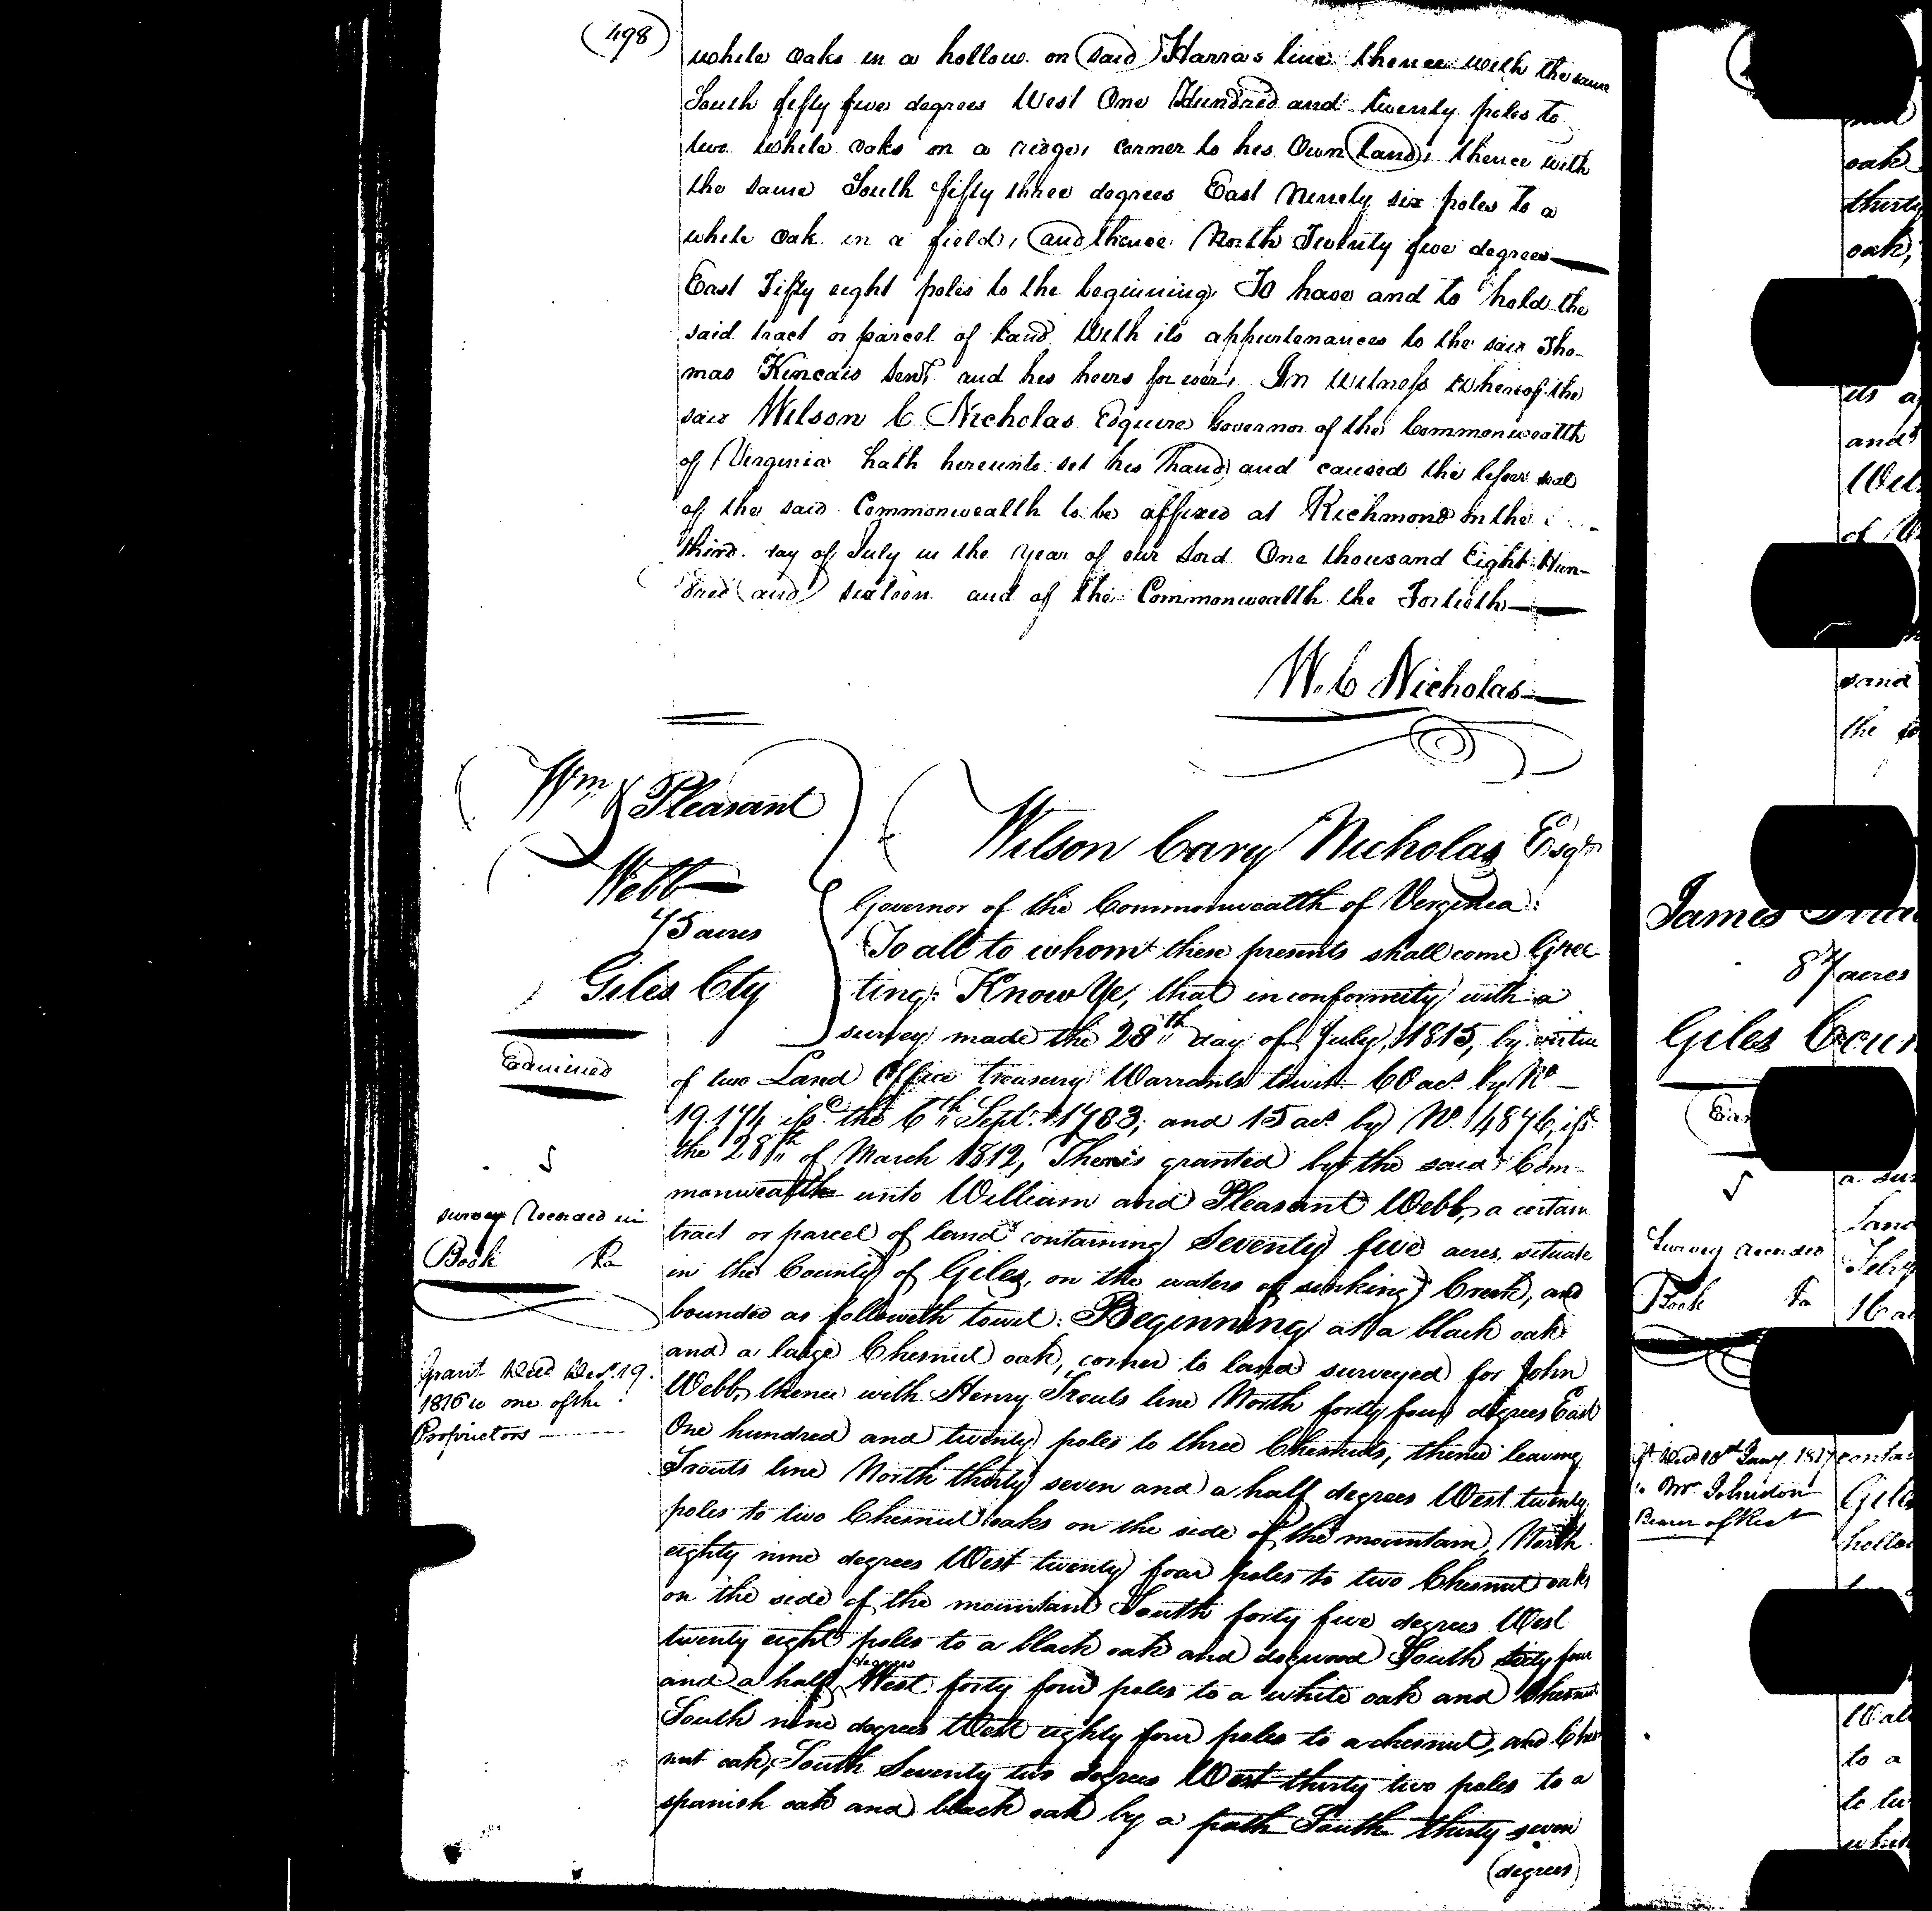 (498)
white oaks in a hollow on said Harras line thence with the same
South fifty five degrees West One Hundred and twenty poles to
two white oaks on a ridge, corner to his Own land, thence with
the same South fifty three degrees East Ninety six poles to a
white Oak in a field, and thence North Twenty five degrees
East Fifty eight poles to the beginning, To have and to hold the
said tract or parcel of land with its appurtenances to the said Tho-
mas Kincaid Senr. and his heirs forever, In witness whereof the
said Wilson C Nicholas Esquire Governor of the Commonwealth
of Virginia hath hereunto set his hand and caused the lesser seal
of the said Commonwealth to be affixed at Richmond on the
third day of July in the Year of our Lord One thousand Eight Hun-
dred and sixteen and of the Commonwealth the Fortieth
W. C Nicholas
Wm & Pleasant
Webb
75 acres
Giles Cty
Examined
survey Recorded in
Book Pa
Grant Deld Decr. 19.
1816 to one of the
Proprietors
Wilson Cary Nicholas Esqr
Governor of the Commonwealth of Virginia:
To all to whom these presents shall come Gree
ting: Know Ye, that in conformity with a
survey made the 28th day of July, 1815, by virtue
of two Land Office treasury Warrants towit 60 acs. by No
19174 issd. the 6th Sept. 1783, and 15 acs. by No. 4876, iss.
the 28th of March 1812, There is granted by the said Com-
monwealth unto William and Pleasant Webb, a certain
tract or parcel of land containing Seventy five acres, situate
in the County of Giles, on the waters of sinking Creek, and
bounded as followeth towit: Beginning at a black oak
and a large Chesnut oak, corner to land surveyed for John
Webb, thence with Henry Trouts line North forty four degrees East
One hundred and twenty poles to three Chesnuts, thence leaving
Trouts line North thirty seven and a half degrees West twenty
poles to two Chesnut oaks on the side of the mountain, North
eighty nine degrees West twenty four poles to two Chesnut oaks
on the side of the mountain South forty five degrees West
twenty eight poles to a black oak and dogwood South sixty four
and a half degrees West forty four poles to a white oak and Chesnut
South nine degrees West eighty four poles to a chesnut, and Ches
nut oak, South Seventy two degrees West thirty two poles to a
spanish oak and black oak by a path South thirty seven
(degrees)
oak
thirty
oak,
its a
and
of
sand
the
James
87 acres
Giles Coun
Survey recorded
Book Pa
16 ac
Deld 18th Jany. 1817
to Mr. Johnston
Bearer of Rect
conta
Gile
to a